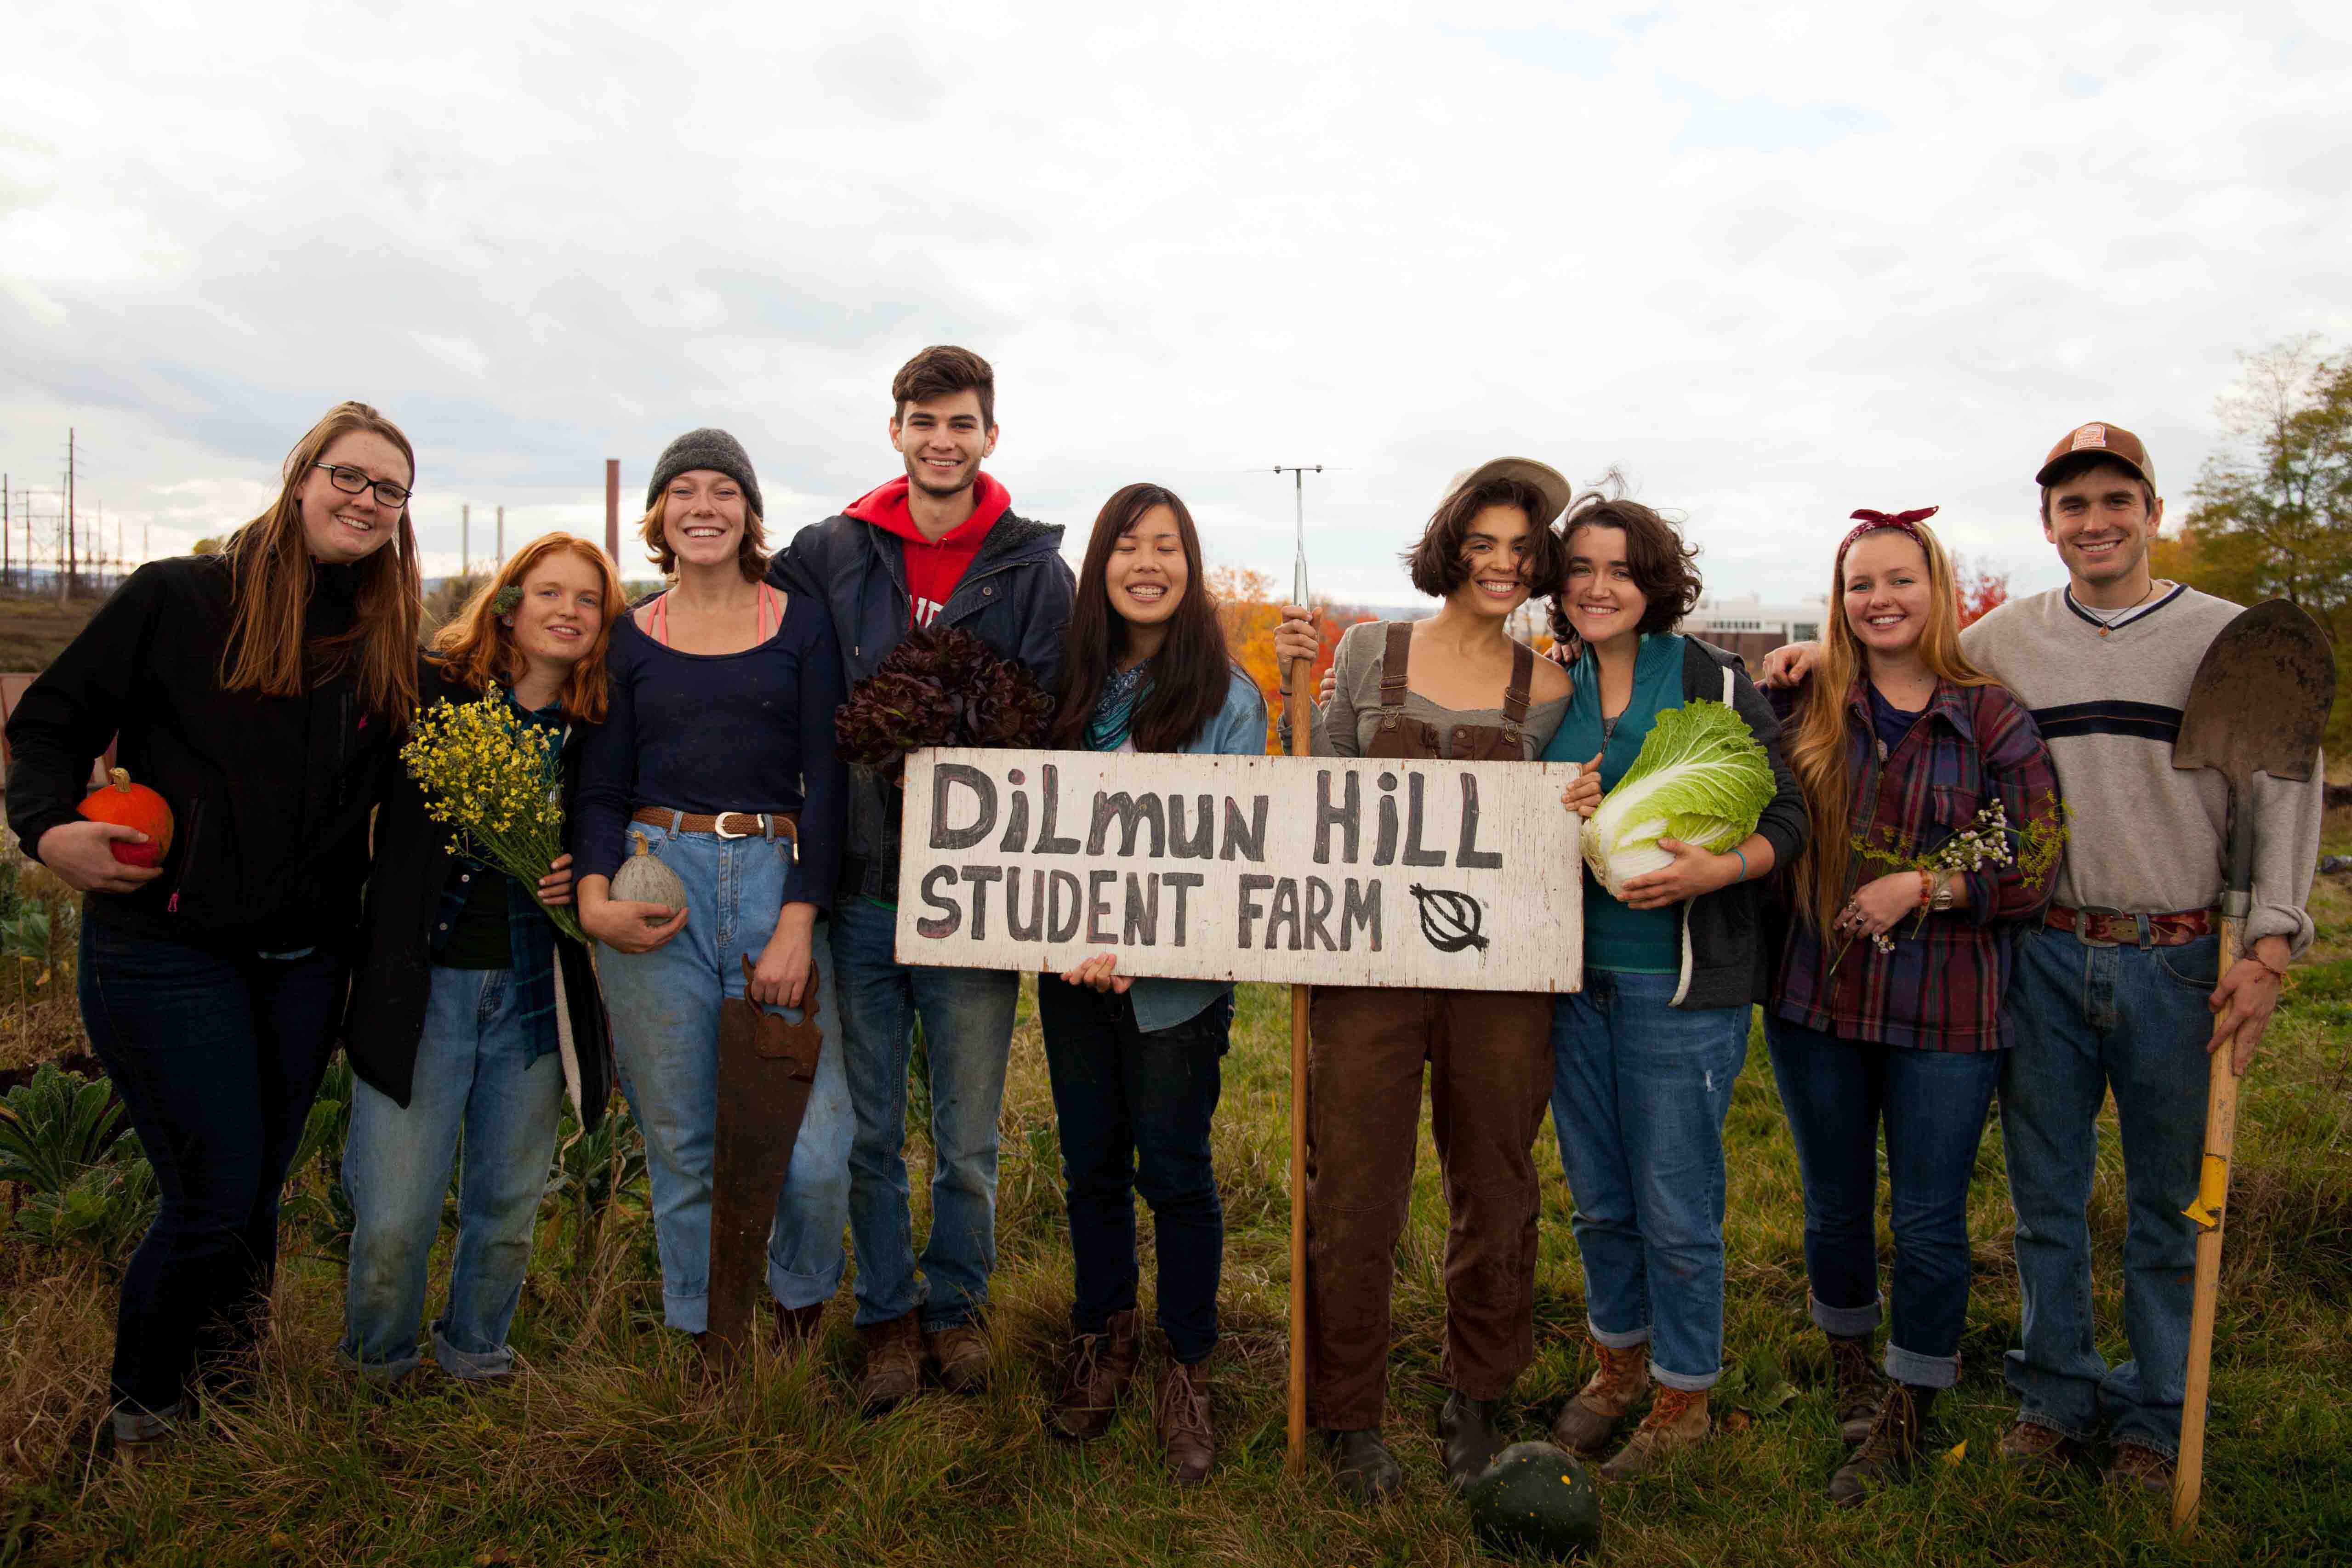 DiLmUN HiLL
STUDENT FARM